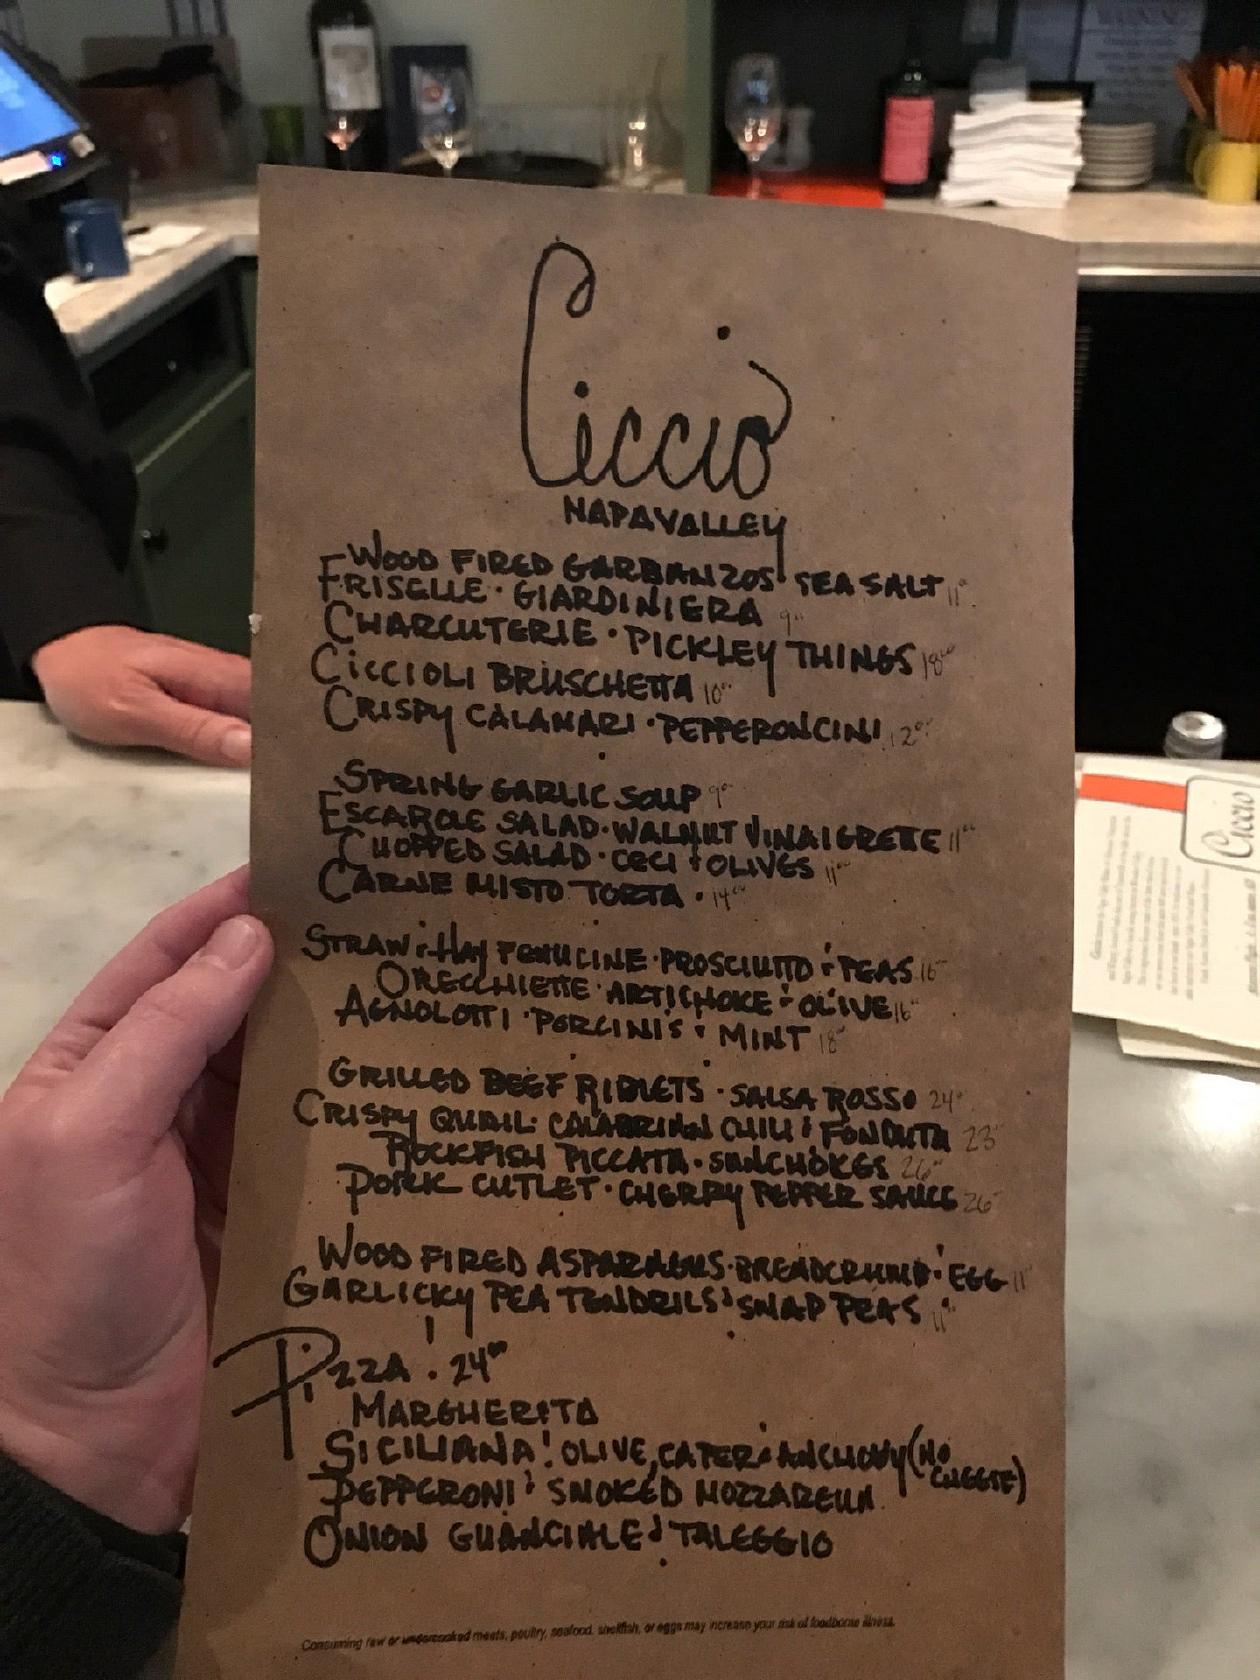 Ciccio
NAPA VALLEY
WOOD FIRED GARBANZOS · SEA SALT 11
FRISELLE · GIARDINIERA 9
CHARCUTERIE · PICKLEY THINGS 18
CICCIOLI BRUSCHETTA 10
CRISPY CALAMARI · PEPPERONCINI 12
SPRING GARLIC SOUP 9
ESCAROLE SALAD · WALNUT VINAIGRETTE 11
CHOPPED SALAD · CECI & OLIVES 11
CARNE MISTO TORTA · 14
STRAW & HAY FETTUCINE · PROSCIUTTO & PEAS 16
ORECCHIETTE · ARTICHOKE & OLIVE 16
AGNOLOTTI · PORCINIS & MINT 18
GRILLED BEEF RIBLETS · SALSA ROSSO 24
CRISPY QUAIL · CALABRIAN CHILI & FONDUTA 23
ROCKFISH PICCATA · SUNCHOKES 26
PORK CUTLET · CHERRY PEPPER SAUCE 26
WOOD FIRED ASPARAGUS · BREADCRUMB & EGG 11
GARLICKY PEA TENDRILS & SNAP PEAS 11
PIZZA! · 24
MARGHERITA
SICILIANA! OLIVE, CAPER & ANCHOVY (NO CHEESE)
PEPPERONI & SMOKED MOZZARELLA
ONION GUANCIALE & TALEGGIO
Consuming raw or undercooked meats, poultry, seafood, shellfish, or eggs may increase your risk of foodborne illness.
Ciccio